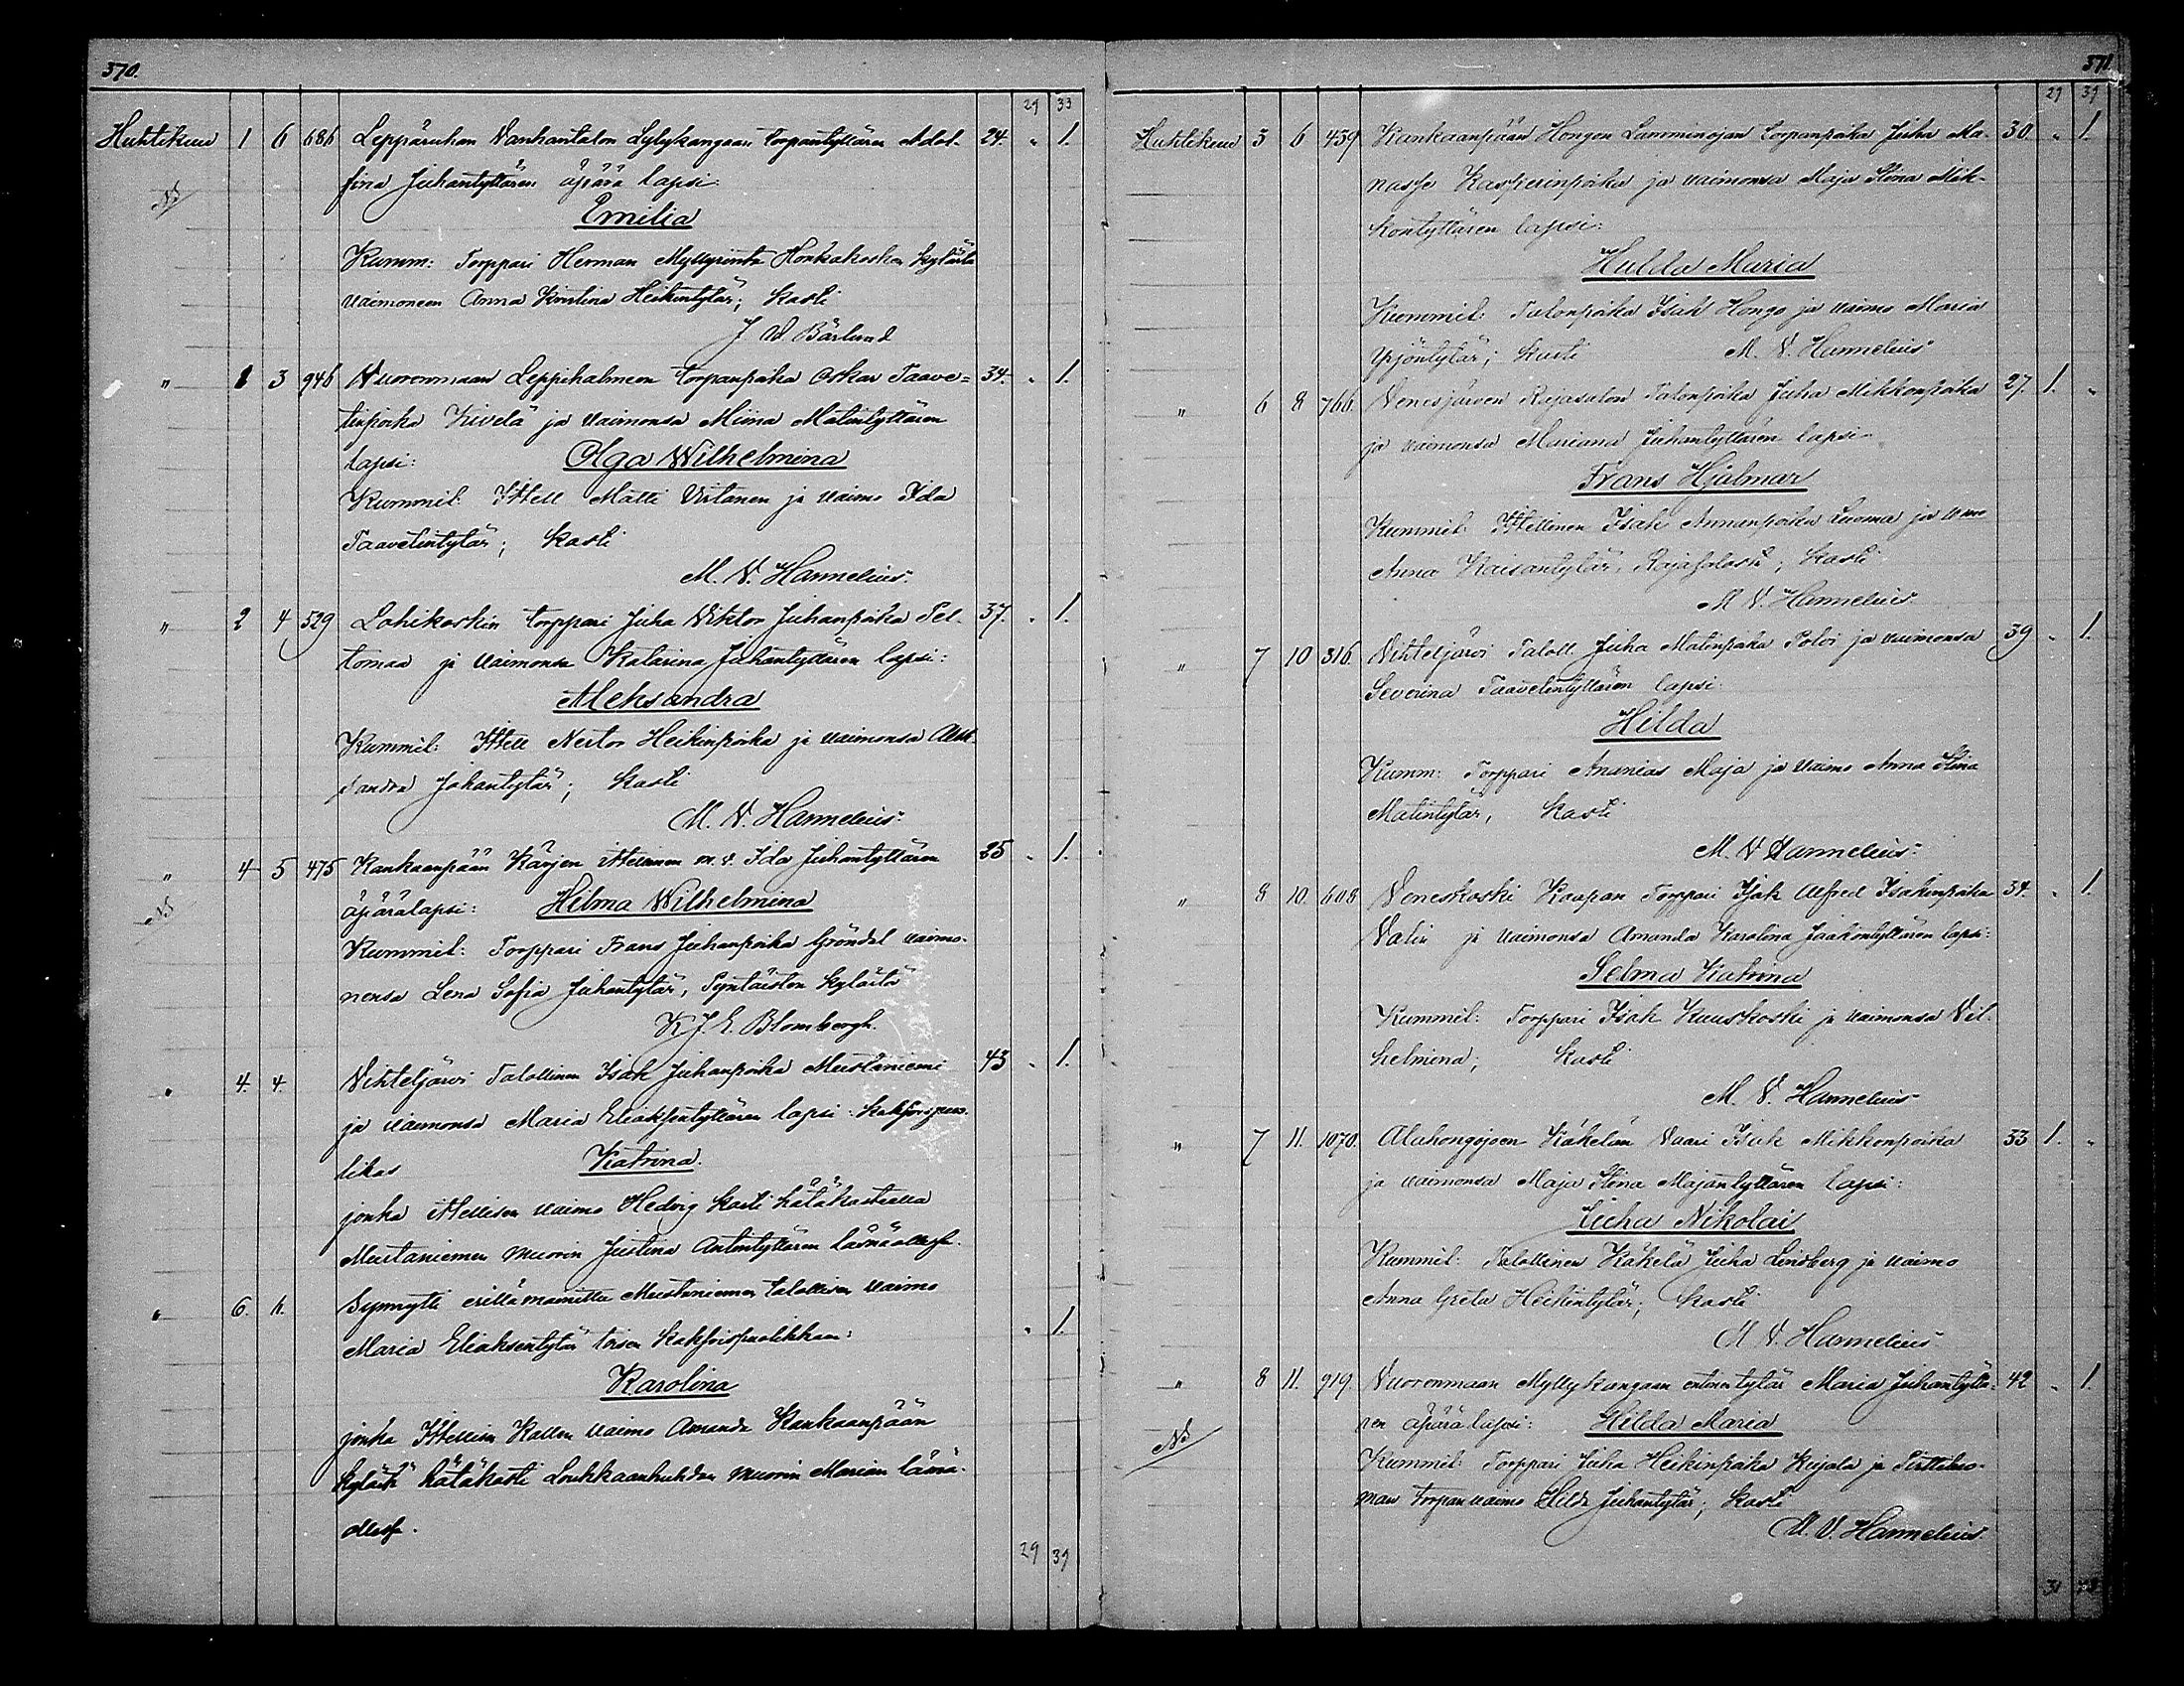 370.
29 33
Huhtikuu 1 6 686 Leppäruhan Vanhantalon Lylykangaan torpantyttären Adol- 24. „ 1.
fina Juhantyttären äpärä lapsi:
Nb
Emilia
Kumm: Torppari Herman Myllyrinta Honkakosken kylästä
vaimoneen Anna Kristina Heikintytär; Kasti
J W. Bärlund
„ 1 3 946 Vuorenmaan Leppihalmeen torpanpoika Oskar Taave= 34. „ 1.
tinpoika Kivelä ja vaimonsa Miina Matintyttären
lapsi: Olga Wilhelmina
Kummit: Itsell Matti Virtanen ja vaimo Ida
Taavetintytär; Kasti
M. V. Hannelius.
„ 2 4 529 Lohikoskin torppari Juha Viktor Juhanpoika Pel- 37. „ 1.
tomaa ja vaimonsa Katarina Juhantyttären lapsi:
Aleksandra
Kummit: Itsell Nestor Heikinpoika ja vaimonsa Alek-
sandra Johantytär; Kasti
M. V. Hannelius.
„ 4 5 475 Kankaanpään Kärjen itsellinen m. v. Ida Juhantyttären 25 „ 1.
Nb
äpärälapsi: Hilma Wilhelmina
Kummit: Torppari Frans Juhanpoika Gröndal vaimo-
nensa Lena Sofia Juhantytär, Pyntäisten kylästä
K J E. Blombergh.
„ 4. 4. Vihteljärvi Talollinen Isak Juhanpoika Mustaniemi 43 „ 1.
ja vaimonsa Maria Eliaksentyttären lapsi: kaksoispuo-
likas Katrina.
jonka itsellisen vaimo Hedvig Kasti hätäkasteella
Mustaniemen muorin Justina Antintyttären läsnäollessa.
„ 6. h. Synnytti esillämainittu Mustaniemen talollisen vaimo
Maria Eliaksentytär toisen kaksoispuolikkaan: „ 1.
Karolina
jonka Itsellisen Kallen vaimo Amanda Kankaanpään
kylästä hätäkasti Loukkaanhuhdan muorin Marian läsnä-
ollessa.
29 39
371
29 39
Huhtikuu 3 6 439 Kankaanpään Hongon Lamminojan torpanpoika Juha Ma- 30. „ 1.
nasse Kasperinpoika ja vaimonsa Maja Stina Mik-
kontyttären lapsi:
Hulda Maria
Kummit: Talonpoika Isak Hongo ja vaimo Maria
Yrjöntytär; Kasti M. V. Hannelius
„ 6 8 766. Venesjärven Rajasalon Talonpoika Juha Mikkonpoika 27. 1. „
ja vaimonsa Mariana Juhantyttären lapsi
Frans Hjalmar
Kummit: Itsellinen Isak Annanpoika Luoma ja vmo
Anna Kaisantytär, Rajasalosta; Kasti
M V. Hannelius
„ 7 10 316. Vihteljärvi Taloll. Juha Matinpoika Polvi ja vaimonsa 39 „ 1.
Severina Taavetintyttären lapsi
Hilda
Kumm: Torppari Ananias Maja ja vaimo Anna Stina
Matintytär, Kasti
M. V Hannelius.
„ 8 10. 608 Veneskoski Kaapan Torppari Isak Alfred Isakinpoika 34. „ 1.
Valin ja vaimonsa Amanda Karolina Jaakontyttären lapsi:
Selma Katrina
Kummit: Torppari Isak Kuuskoski ja vaimonsa Vil-
helmina; Kasti
M. V. Hannelius
„ 7 11. 1070. Alahongojoen Käkelän Vaari Isak Mikkonpoika 33 1. „
ja vaimonsa Maja Stina Majantyttären lapsi:
Juha Nikolai
Kummit: Talollinen Käkelä Juha Lindberg ja vaimo
Anna Greta Heikintytär; Kasti
M V. Hannelius
„ 8 11. 919. Vuorenmaan Myllykangaan entinen tytär Maria Juhantyttä- 42 „ 1.
ren äpärä lapsi: Hilda Maria
Nb
Kummit: Torppari Juha Heikinpoika Kujala ja Pirttiluo-
man torpan vaimo Hilda Juhantytär; Kasti
M. V. Hannelius
31